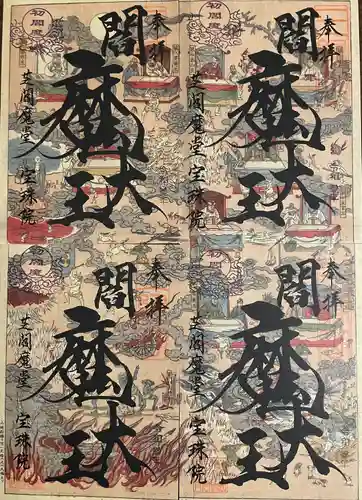 奉拝
閻魔大王
芝閻魔堂 宝珠院
初閻魔
奉拝
閻魔大王
芝閻魔堂 宝珠院
初閻魔
奉拝
閻魔大王
芝閻魔堂 宝珠院
初閻魔
奉拝
閻魔大王
芝閻魔堂 宝珠院
初閻魔